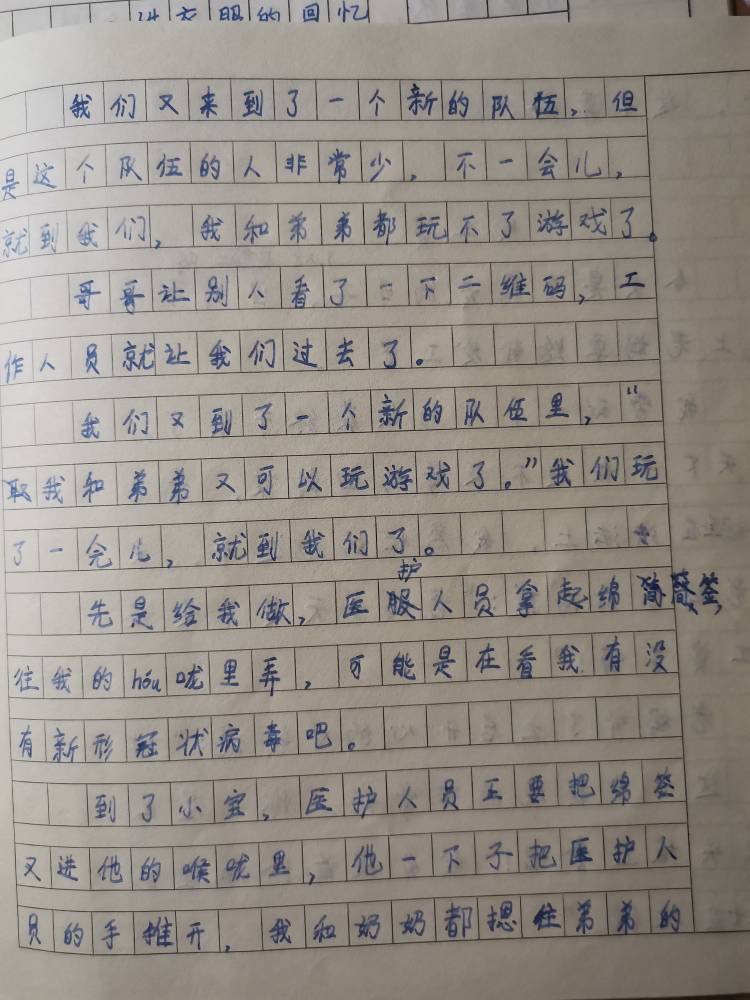 服的回忆
我们又来到了一个新的队伍，但
是这个队伍的人非常少，不一会儿，
就到我们，我和弟弟都玩不了游戏了。
哥哥让别人看了一下二维码，工
作人员就让我们过去了。
我们又到了一个新的队伍里，“
取我和弟弟又可以玩游戏了。”我们玩
了一会儿，就到我们了。
护
先是给我做，医服人员拿起绵签，
往我的hóu咙里弄，可能是在看我有没
有新形冠状病毒吧。
到了小宝，医护人员王要把绵签
又进他的喉咙里，他一下子把医护人
员的手推开，我和奶奶都摁住弟弟的